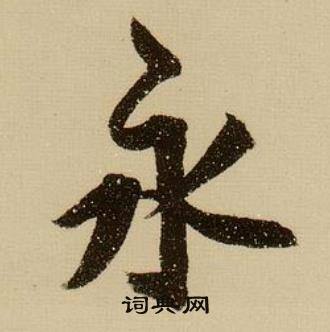 永
词典网